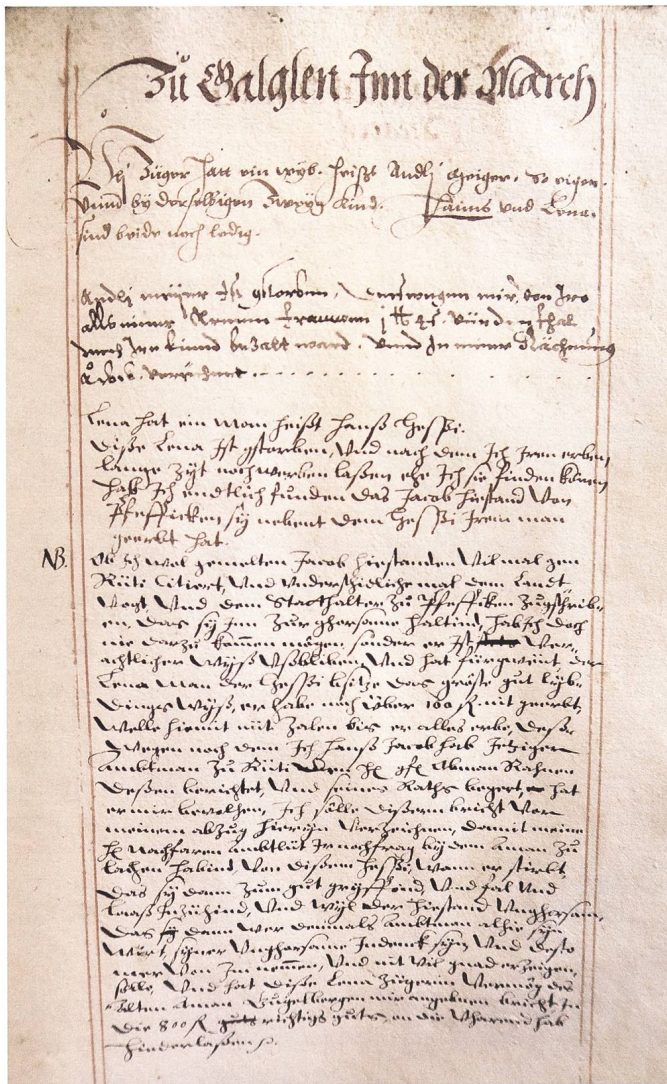 Zů Galglen Inn der March
Ůlj Züger hatt ein wyb heißt Andlj Geiger. So eigen.
Vnnd by derselbigen Zweyg kind. Hanns vnd Lena.
sind beide noch ledig.
Andlj meyer ist gstorben. von Iro
alls miner Armen frauwen
noch Irn kinnd bezalt ward. vnnd In miner Rächnung
verrechnet
Lena hat ein Man heißt Hanß Heßi.
Diße Lena ist gstorben, Vnd nach dem Ich Iren erben
lange Zyt nachwerben laßen ehe Ich sie finden können
hab Ich endtlich funden das Jacob Hiestand von
Pfeffickon sÿ nebent dem Heßi Irem man
geerbt hat.
NB. Ob Ich wol gemelten Jacob Hiestanden Vil mal gen
Rüti Citiert, Vnd vnderschidliche mal dem Landt
Vogt, Vnd dem Statthalter zů Pfeffickon zůgschrib-
en, das sÿ Inn zur ghorsame haltind, hab Ich doch
nie darzů kommen mögen, sonder er Ist Ver-
achtlicher wÿß vßbliben, Vnd hat fürgwent, der
Lena Man der Heßi besitze das gröste gůt lÿb-
dings wÿß, er habe noch über 100 R. nit geerbt,
welle hiemit nüt Zalen bis er alles erbe, deßet-
wegen nach dem Ich Hanß Jacob Hab Ietziger
Ambtman zů Rüti den Hr. Obman Rahnen
deßen berichtet, Vnd seines Raths begert, hat
er mir bevolhen, Ich sölle dißern bricht Vor
meinem abzug hieryn Verzeichnen, damit meine
Hr Nachfaren Ambtlüt Ir nachfrag by dem Aman zů
Lachen habind, Von dißem Heßi, wann er stirbt,
das sÿ dann zum gůt gryffind, Vnd fal Vnd
Laaß Inzühind, Vnd wÿl der Hiestand Vnghorsam,
das dann wer deßmals Ambtman alhie sÿn
wirt, sÿner Vnghorsame Indenck sÿn, Vnd desto
mer Von Im nemmen, Vnd nit Vil gnad erzeigen
sölle, Vnd hat diße Lena Zügerin Vermög des
alten Aman mir angebnen bricht In
die 800 R. richtigs gůts, on die Vharend hab
hinderlaßen